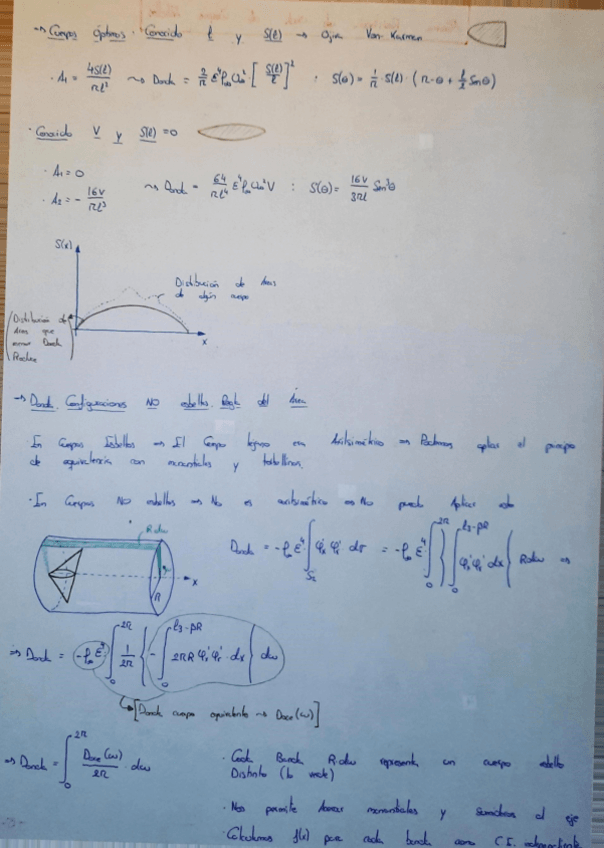 → Cuerpos Óptimos. Conocido l y S(l) → Ojiva Von-Karman
· A₁ = 4S(l)/πl² ⇝ Donda = 2/π ε⁴ρ∞U∞² [S(l)/l]² : S(θ) = 1/π · S(l) · (π - θ + 1/2 Senθ)
· Conocido V y S(l) = 0
· A₁ = 0
· A₂ = - 16V/πl³ ⇝ Donda = 64/πl⁴ ε⁴ρ∞U∞²V : S(θ) = 16V/3πl Sen³θ
S(x)
Distribución de Áreas
de algún cuerpo
(Distribución de
Áreas que
Donda
x
→ Donda. Configuraciones NO esbeltas. Regla del Área
En Cuerpos Esbeltos ⇒ El Cuerpo era Axilsimétrico ⇒ Podemos aplicar el principio
de equivalencia con manantiales y torbellinos.
· En Cuerpos NO esbeltos ⇒ No es axilsimétrico ⇒ No puedo Aplicar esto
R dω
R
x
Donda = -ρ∞ε⁴ ∫ φx' φr' dσ = -ρ∞ε⁴ ∫₀^2π { ∫₀^l₃-βR φx' φr' dx } R dω ⇒
⇒ Donda = -ρ∞ε⁴ ∫₀^2π 1/2π { - ∫₀^l₃-βR 2πR φx' φr' dx } dω
[Donda cuerpo equivalente → Doce(ω)]
⇒ Donda = ∫₀^2π Doce(ω)/2π · dω
· Cada Banda R·dω representa un cuerpo esbelto
Distinto (lo verde)
· Nos permite manantiales y al eje
· Calculamos f(x) para cada banda como C.E. independiente